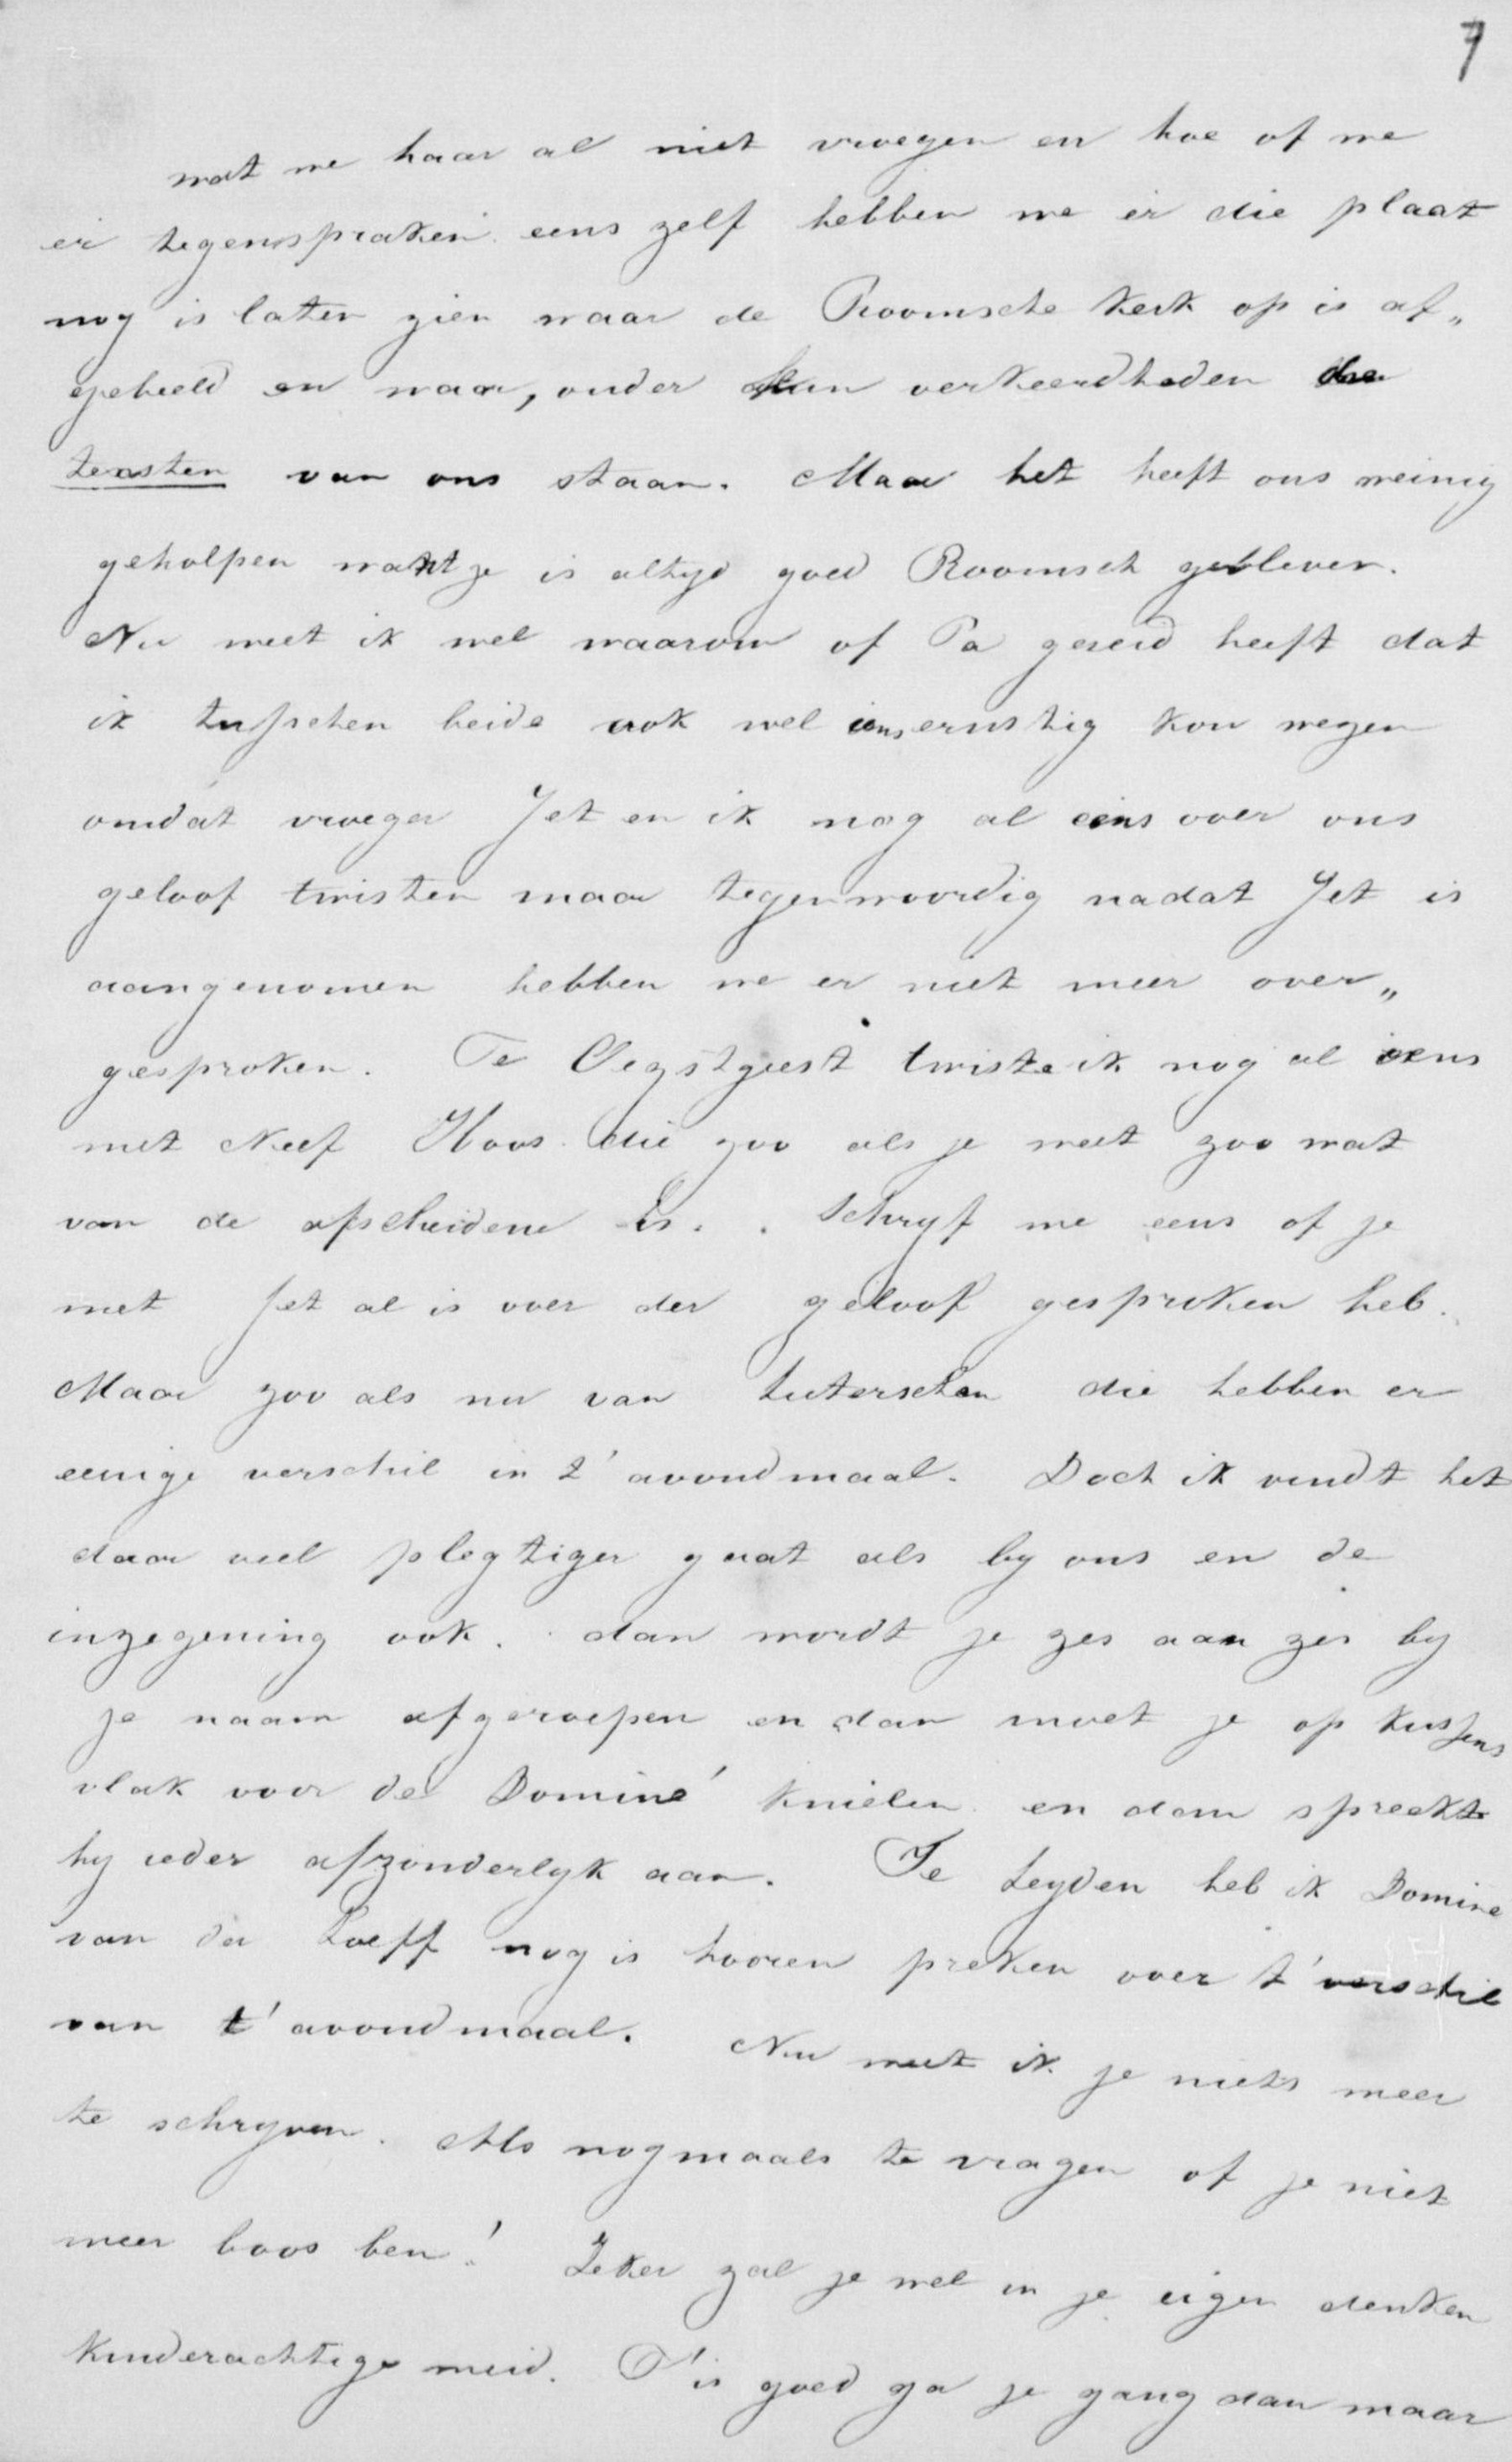 7
wat we haar al niet vroegen en hoe of we
er tegenspraken eens zelf hebben we er die plaat
nog is laten zien waar de Roomsche Kerk op is af„
gebeeld en waar, onder hun verkeerdheden de
texsten van ons staan. Maar het heeft ons weinig
geholpen want ze is altyd goed Roomsch gebleven.
Nu weet ik wel waarom of Pa gezeid heeft dat
ik tusschen beide ook wel eens ernstig kon wezen
omdat vroeger Jet en ik nog al eens over ons
geloof twisten maar tegenwoordig nadat Jet is
aangenomen hebben we er niet meer over„
gesproken. Te Oegstgeest twiste ik nog al eens
met Neef Koos die zoo als je weet zoo wat
van de afscheidene is. Schryf me eens of je
met Jet al is over der geloof gesproken heb.
Maar zoo als nu van Luterschen die hebben er
eenige verschil in t' avondmaal. Doch ik vindt het
daar veel plegtiger gaat als by ons en de
inzegening ook. dan wordt je zes aan zes by
je naam afgeroepen en dan moet je op kussens
vlak voor de Dominé knielen en dan spreekt
hy ieder afzonderlyk aan. Te Leyden heb ik Domine
van der Loeff nog is hooren preken over t' verschil
van t' avondmaal. Nu weet ik je niets meer
te schryven. Als nogmaals te vragen of je niet
meer boos ben! Zeker zal je wel in je eigen denken
kinderachtige meid. T' is goed ga je gang dan maar